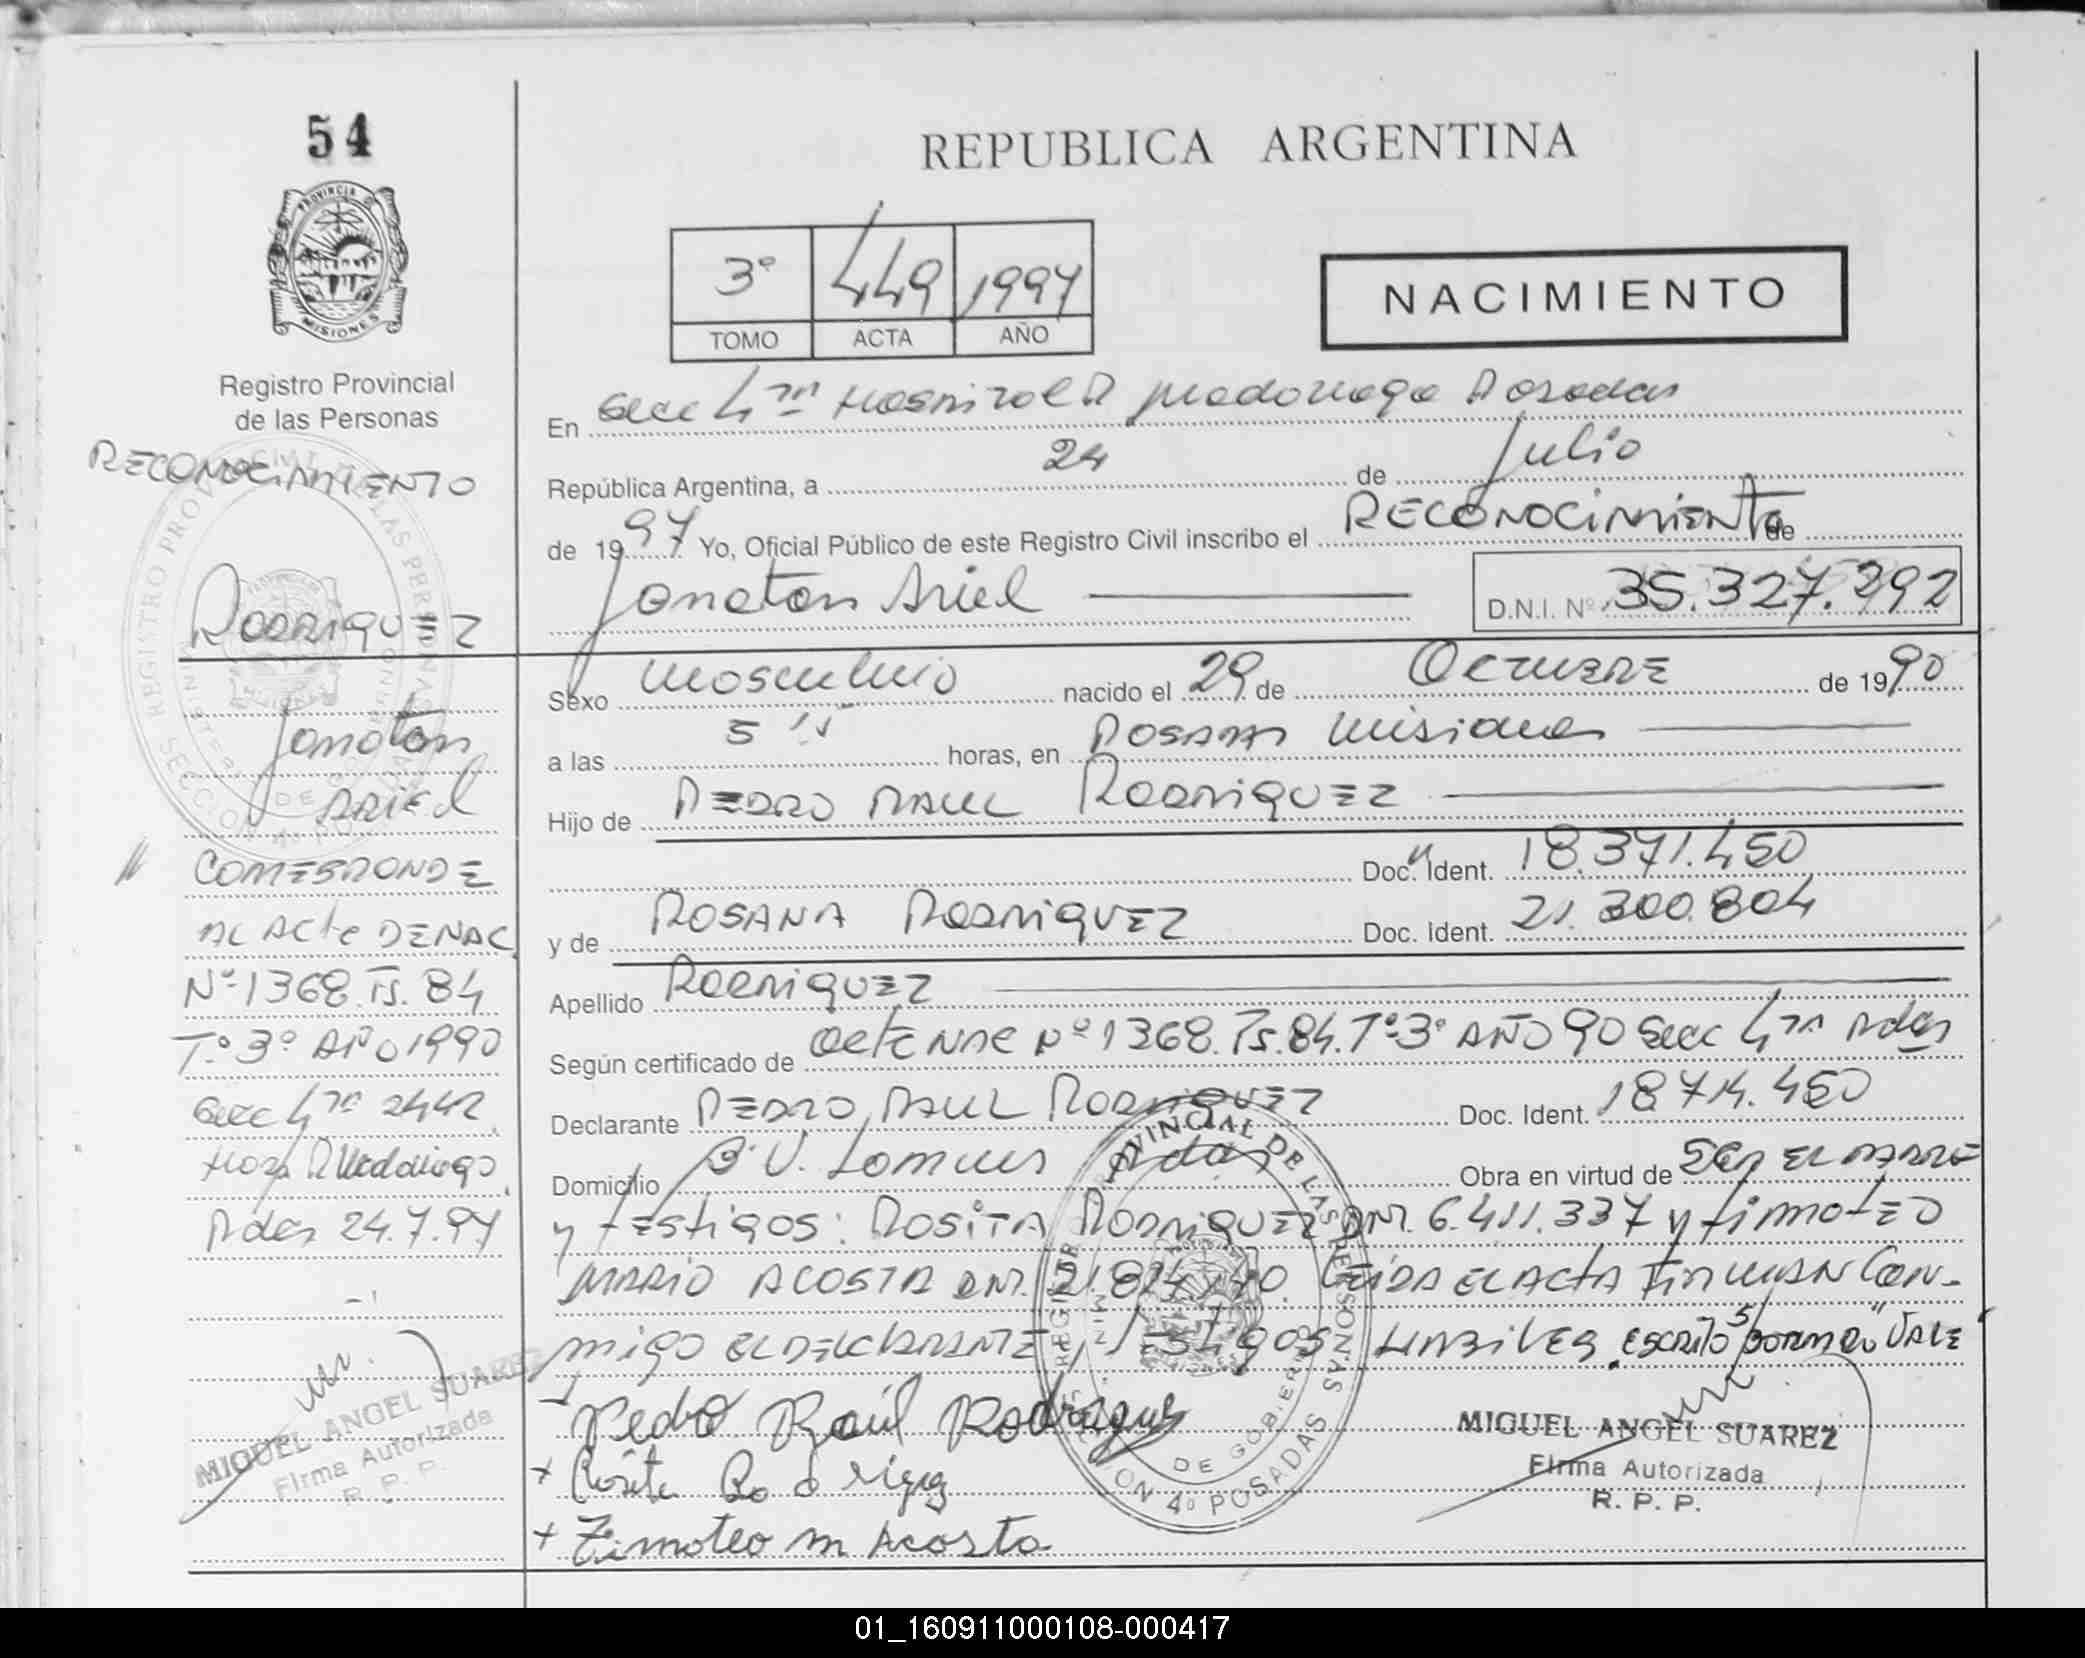 54
PROVINCIA D
MISIONES
Registro Provincial
de las Personas
RECONOCIMIENTO
RODRIGUEZ
Jonatan
ARIEL
CORRESPONDE
AL ACtA DE NAC.
Nº 1368. Fs. 84
T.º 3º AÑO 1990
Secc 4ta 2442
Hosp R Madariaga
Pdas 24.7.97
MIGUEL ANGEL SUAREZ
Firma Autorizada
R. P. P.
REPUBLICA ARGENTINA
3º 449 1997
TOMO ACTA AÑO
NACIMIENTO
En Secc 4ta Hospital R Madariaga Posadas
República Argentina, a 24 de Julio
de 1997 Yo, Oficial Público de este Registro Civil inscribo el RECONOCIMIENTO de
Jonatan Ariel D.N.I. Nº 35.327.292
Sexo Masculino nacido el 29 de OCTUBRE de 1990
a las 5 15 horas, en POSADAS Misiones
Hijo de PEDRO RAUL RODRIGUEZ
Doc. Ident. 18.371.450
y de ROSANA RODRIGUEZ Doc. Ident. 21.300.804
Apellido RODRIGUEZ
Según certificado de ActA NAC Nº 1368. Fs. 84. Tº 3º AÑO 90 Secc 4ta Pdas
Declarante PEDRO RAUL RODRIGUEZ Doc. Ident. 18.714.450
Domicilio B. V. Lomas Pdas Obra en virtud de SER EL PADRE
y tEstigos: ROSITA RODRIGUEZ DNI. 6.411.337 y timotEO
MARIO ACOSTA DNI. LEIDA EL ACtA FIRMAN CON-
migo EL DECLARANTE y TEStigos HABILES. ESCRITO 5 BORRADO "VALE"
Pedro Raúl Rodriguez
+ Rosita Rodrigez
+ Timoteo M Acosta
REGISTRO PROVINCIAL DE LAS PERSONAS
DE GOBIERNO
SECCION 4º POSADAS
MIGUEL ANGEL SUAREZ
Firma Autorizada
R. P. P.
01_160911000108-000417